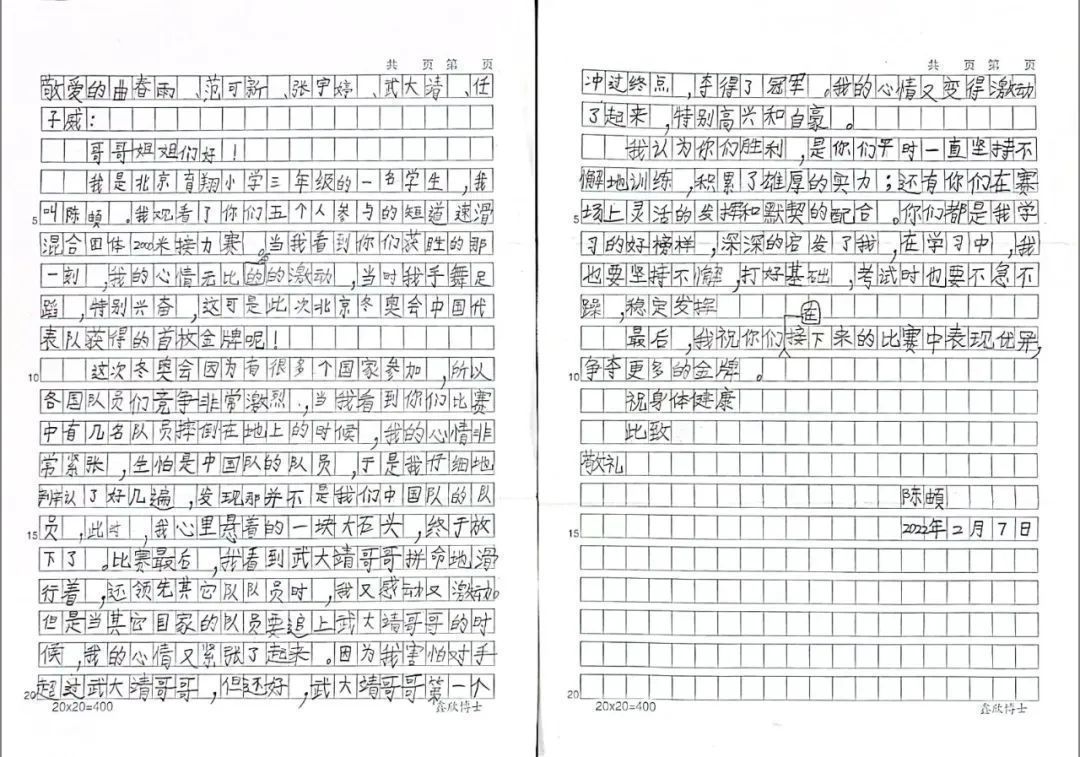 共 页 第 页
敬爱的曲春雨、范可新、张宇婷、武大靖、任
子威：
哥哥姐姐们好！
我是北京育翔小学三年级的一名学生，我
5 叫陈頔。我观看了你们五个人参与的短道速滑
混合团体2000米接力赛。当我看到你们获胜的那
一刻，我的心情无比的的激动，当时我手舞足
蹈，特别兴奋，这可是此次北京冬奥会中国代
表队获得的首枚金牌呢！
10 这次冬奥会因为有很多个国家参加，所以
各国队员们竞争非常激烈，当我看到你们比赛
中有几名队员摔倒在地上的时候，我的心情非
常紧张，生怕是中国队的队员，于是我仔细地
辨认了好几遍，发现那并不是我们中国队的队
15 员，此时，我心里悬着的一块大石头，终于放
下了。比赛最后，我看到武大靖哥哥拼命地滑
行着，还领先其它队队员时，我又感动又激动
但是当其它国家的队员要追上武大靖哥哥的时
候，我的心情又紧张了起来。因为我害怕对手
20 超过武大靖哥哥，但还好，武大靖哥哥第一个
20x20=400 鑫欣博士
共 页 第 页
冲过终点，夺得了冠军。我的心情又变得激动
了起来，特别高兴和自豪。
我认为你们胜利，是你们平时一直坚持不
懈地训练，积累了雄厚的实力；还有你们在赛
5 场上灵活的发挥和默契的配合。你们都是我学
习的好榜样，深深的启发了我，在学习中，我
也要坚持不懈，打好基础，考试时也要不急不
躁，稳定发挥
最后，我祝你们在接下来的比赛中表现优异，
10 争夺更多的金牌。
祝身体健康
此致
敬礼
陈頔
15 2022年2月7日
20
20x20=400 鑫欣博士